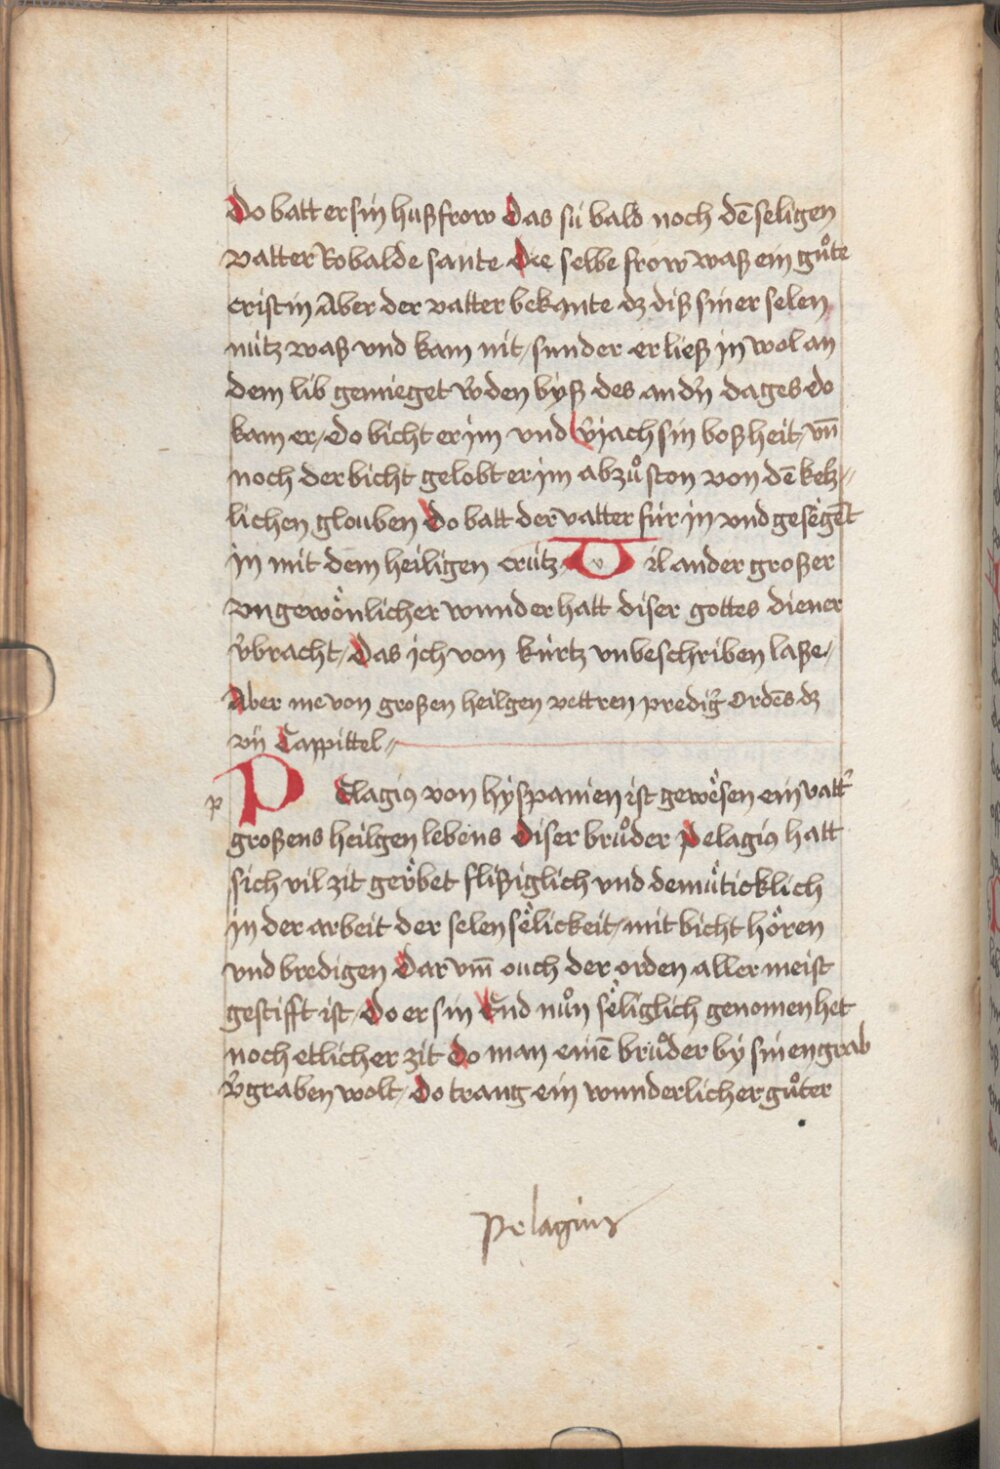 Do batt er sin hußfrow Das sú bald noch dē seligen
vatter Robalde sante Die selbe frow waß ein gůte
cristin Aber der vatter bekante dz diß siner selen
nútz waß vnd kam nit / sunder er ließ in wol an
dem lib gemieget w̓den byß des andn̄ dages do
kam er / do bicht er im vnd v̓iach sin boßheit / vn̄
noch der bicht gelobt er im abzůston von dē ketz-
lichen glouben Do batt der vatter fúr in vnd gesegēt
in mit dem heiligen crútz / Vil ander großer
vngewönlicher wunder hatt diser gottes diener
v̓bracht / Das ich von kúrtz vnbeschriben laße /
Aber me von großen heilgen vettren predig̓ ordēs dz
vij Cappittel
P
PElagiꝰ von hyspanien ist gewësen ein vatt̓
großens heilgen lebens Diser brůder Pelagiꝰ hatt
sich vil zit geẅbet flißiglich vnd demüticklich
in der arbeit der selen sëlickeit / mit bicht hören
vnd bredigen Dar vm̄ ouch der orden aller meist
gestifft ist / Do er sin End nůn sëliglich genomen het
noch etlicher zit do man einē brůder by sinen grab
v̓graben wolt / Do trang ein wunderlicher gůter
Pelagius